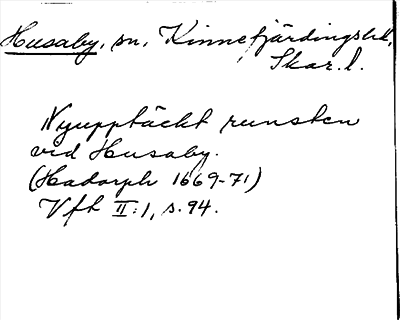 Husaby, sn, Kinnefjärdingshd,
Skar. l.
Nyupptäckt runsten
vid Husaby.
(Hadorph 1669-71)
Vfh II:1, s. 94.